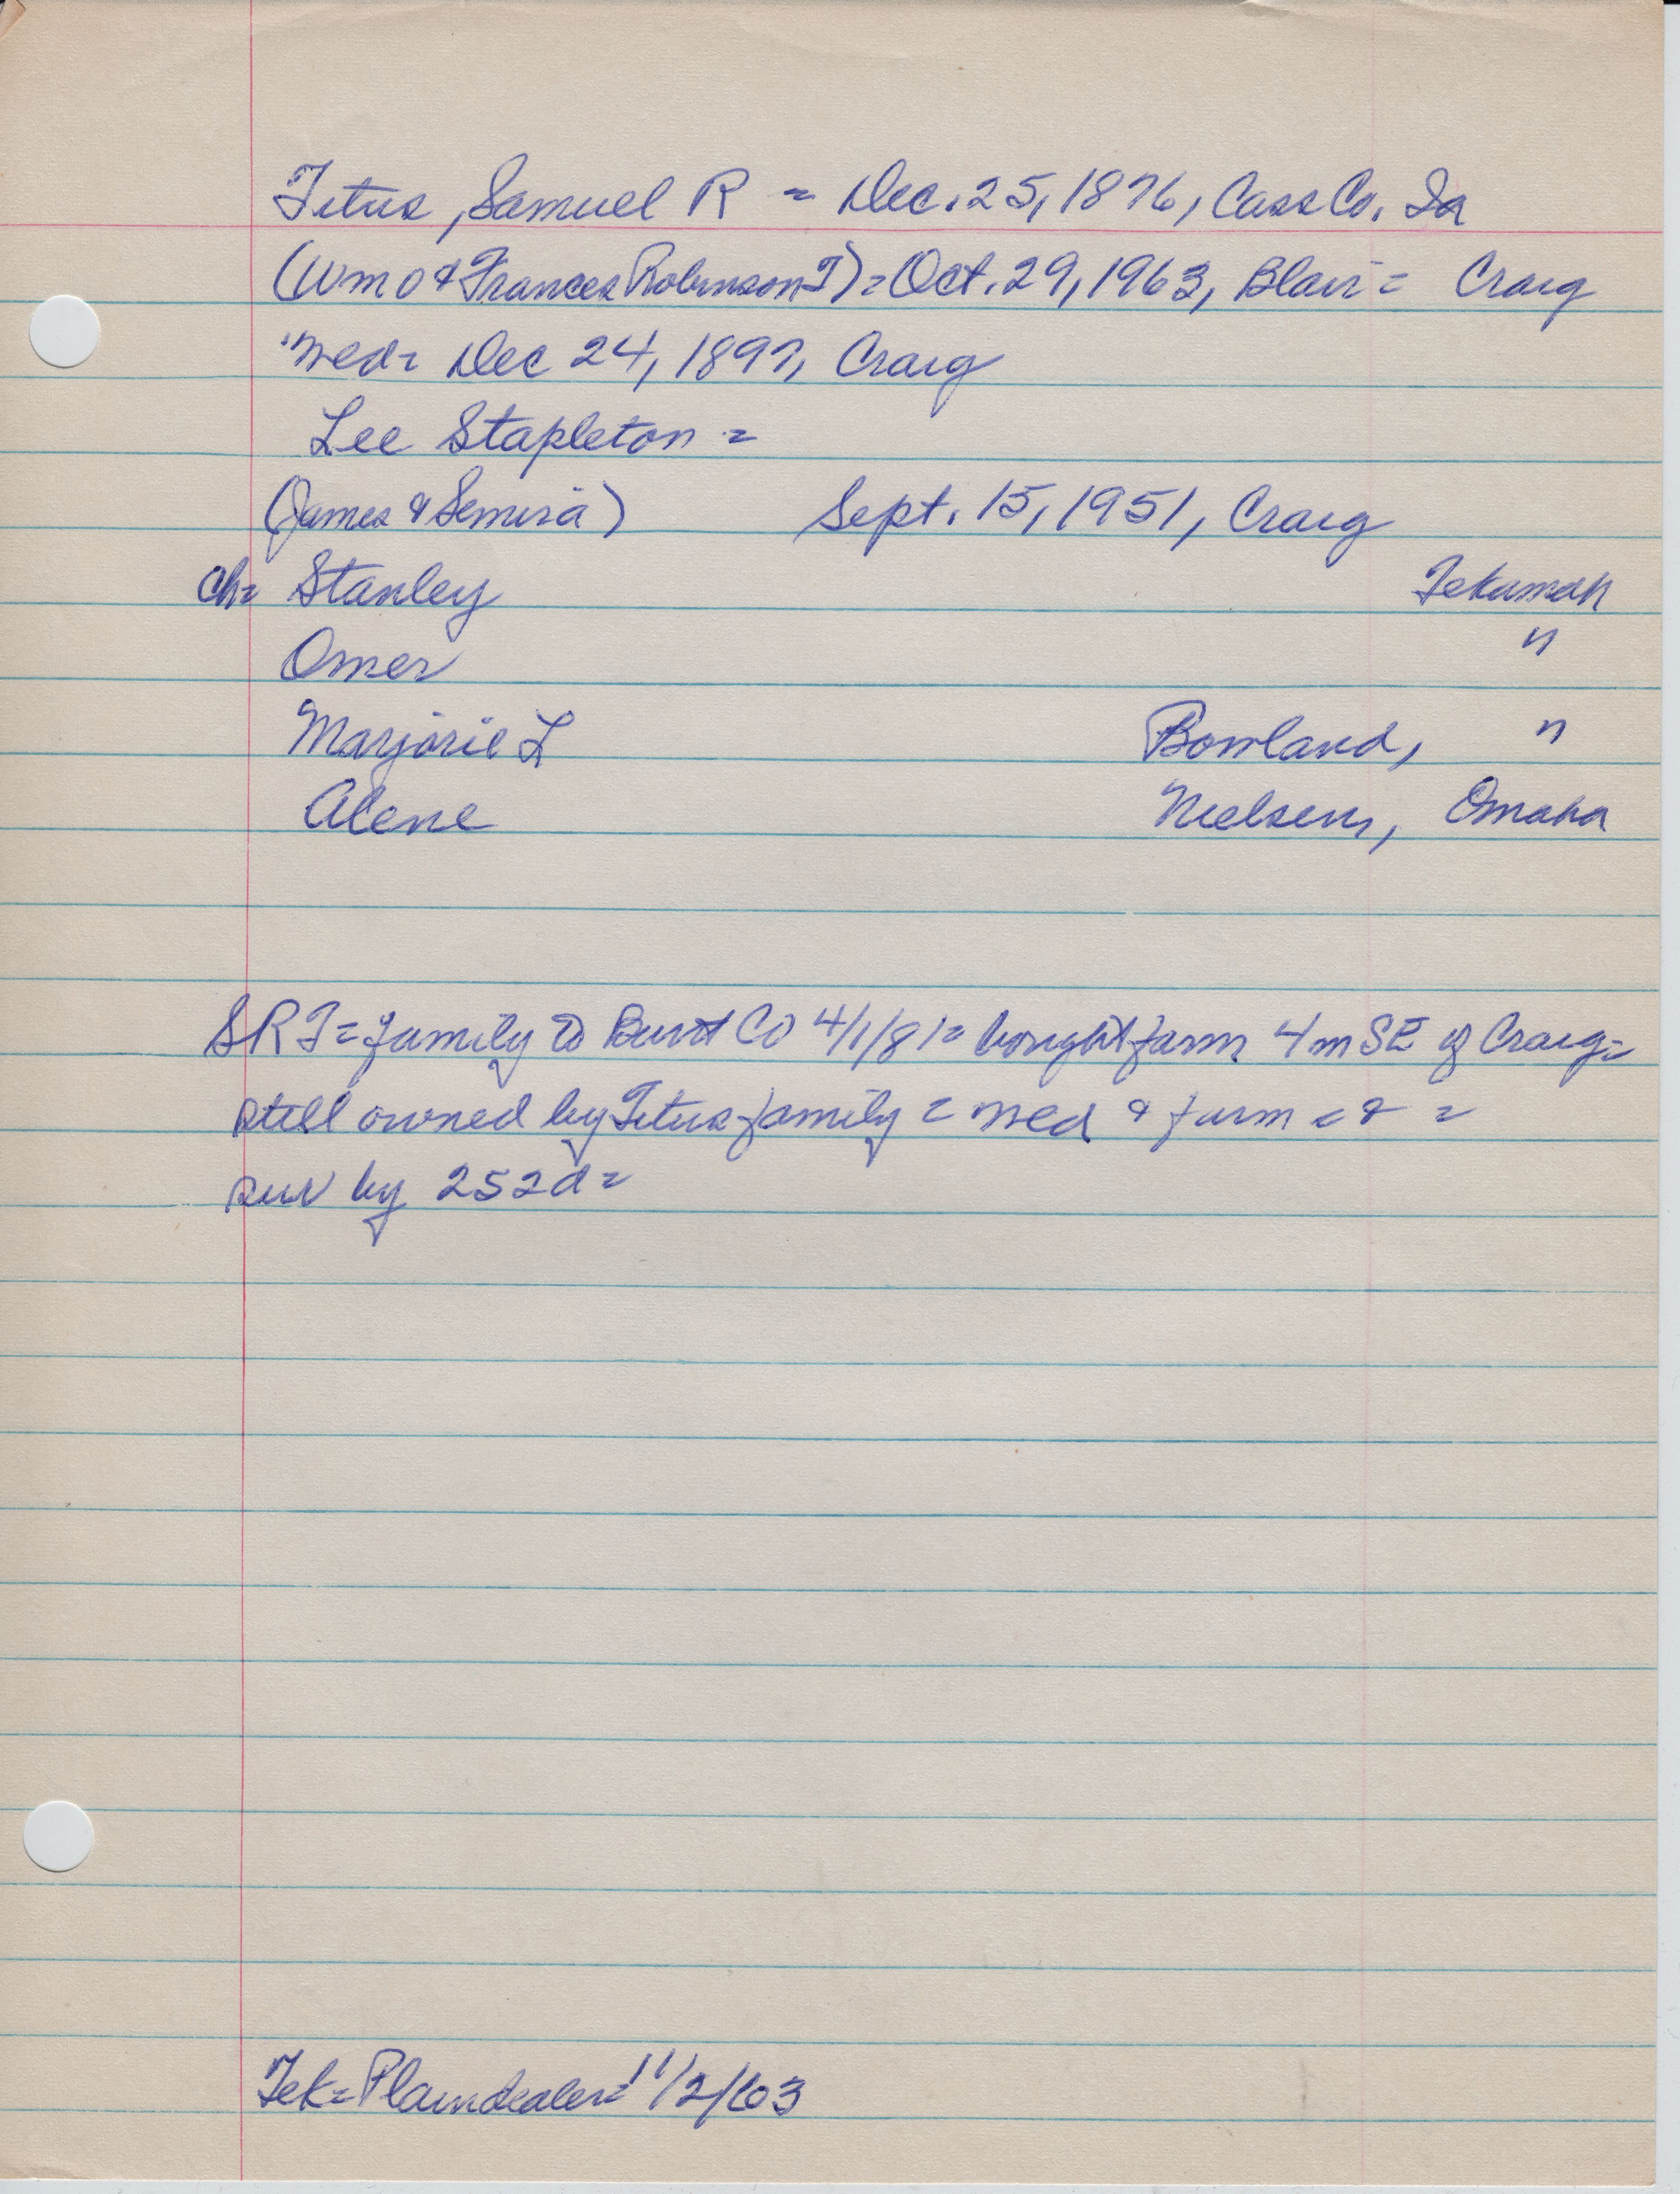 Titus, Samuel R = Dec. 25, 1876, Cass Co. Ia
(Wm O & Frances Robinson T) = Oct. 29, 1963, Blair = Craig
med = Dec 24, 1897, Craig
Lee Stapleton =
(James & Semira) Sept. 15, 1951, Craig
Ch = Stanley Tekamah
Omer "
Marjorie L Bowland, "
Alene Nielsen, Omaha
SRT = family to Burt Co 4/1/81 = bought farm 4 m SE of Craig =
still owned by Titus family = med & farm =
sur by 2S 2d =
Tek = Plaindealer = 11/2/63